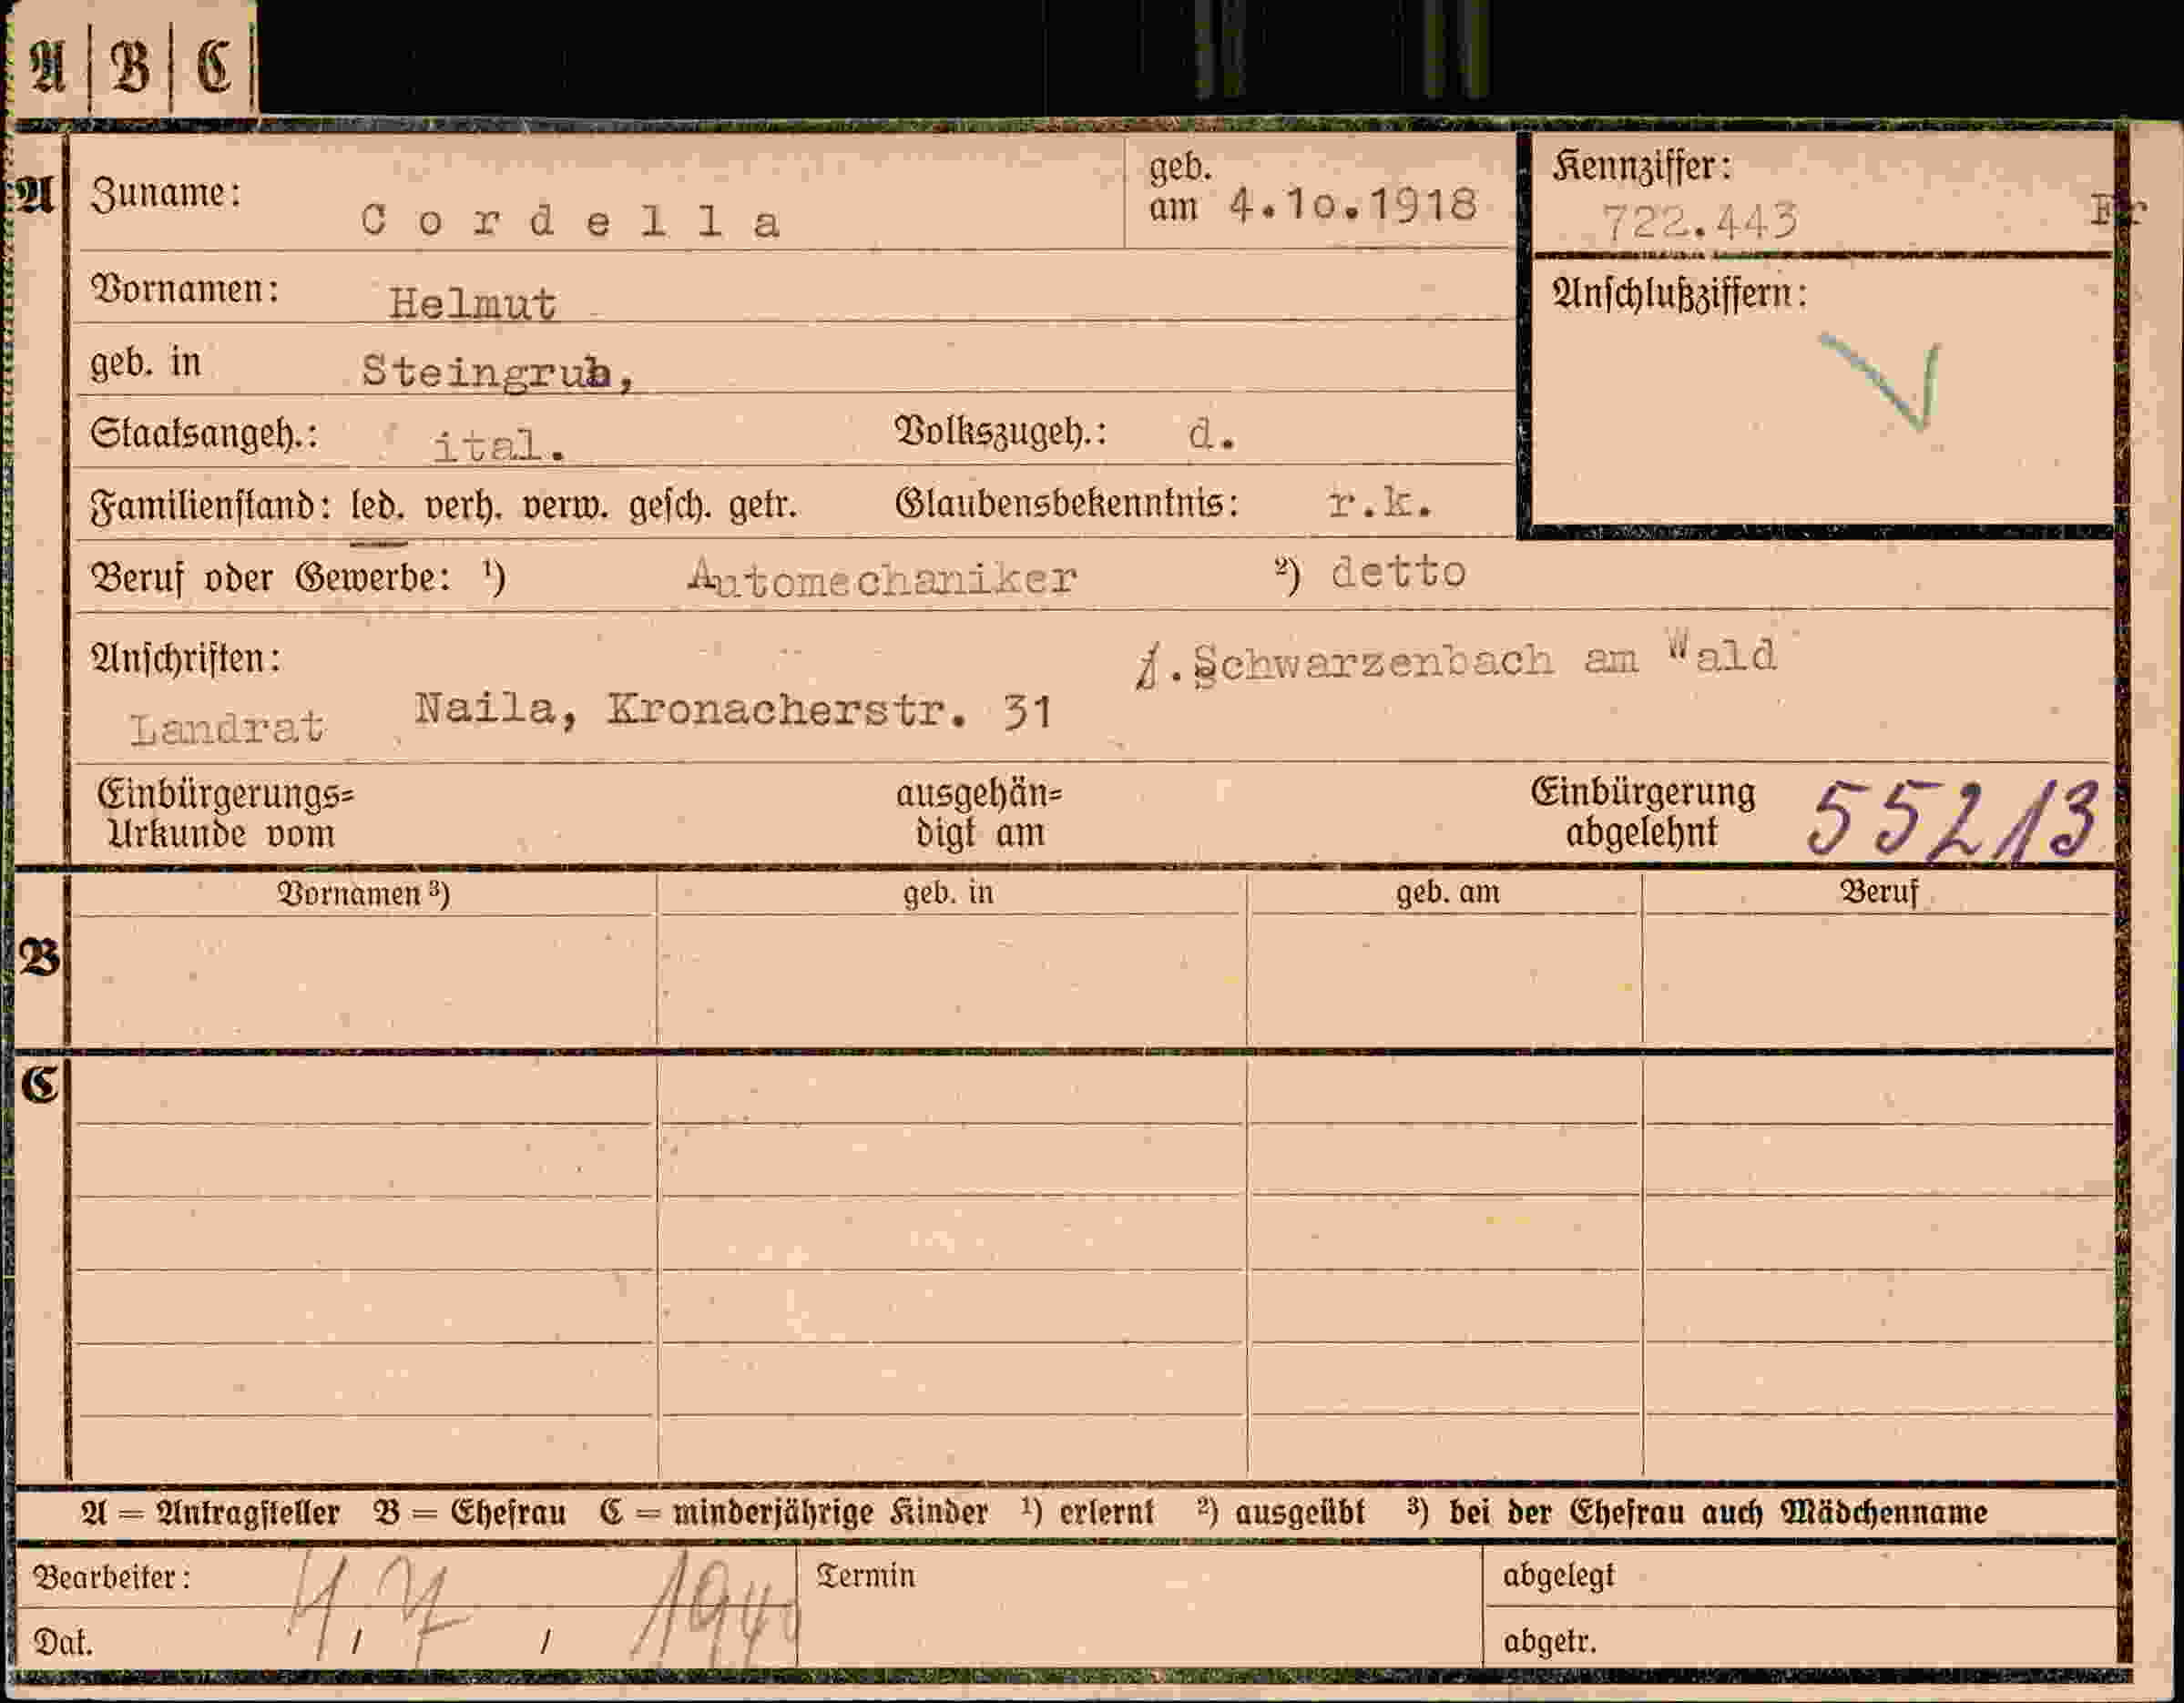 A B C
A Zuname: Cordella geb. am 4.10.1918 Kennziffer: 722.443 Fr
Vornamen: Helmut Anschlußziffern:
geb. in Steingrub,
Staatsangeh.: ital. Volkszugeh.: d.
Familienstand: led. verh. verw. gesch. getr. Glaubensbekenntnis: r.k.
Beruf oder Gewerbe: ¹) Automechaniker ²) detto
Anschriften: .Schwarzenbach am Wald
Landrat Naila, Kronacherstr. 31
Einbürgerungs= ausgehän= Einbürgerung 55213
Urkunde vom digt am abgelehnt
Vornamen ³) geb. in geb. am Beruf
B
C
A = Antragsteller B = Ehefrau C = minderjährige Kinder ¹) erlernt ²) ausgeübt ³) bei der Ehefrau auch Mädchenname
Bearbeiter: Termin abgelegt
Dat. 4.7 1940 abgetr.